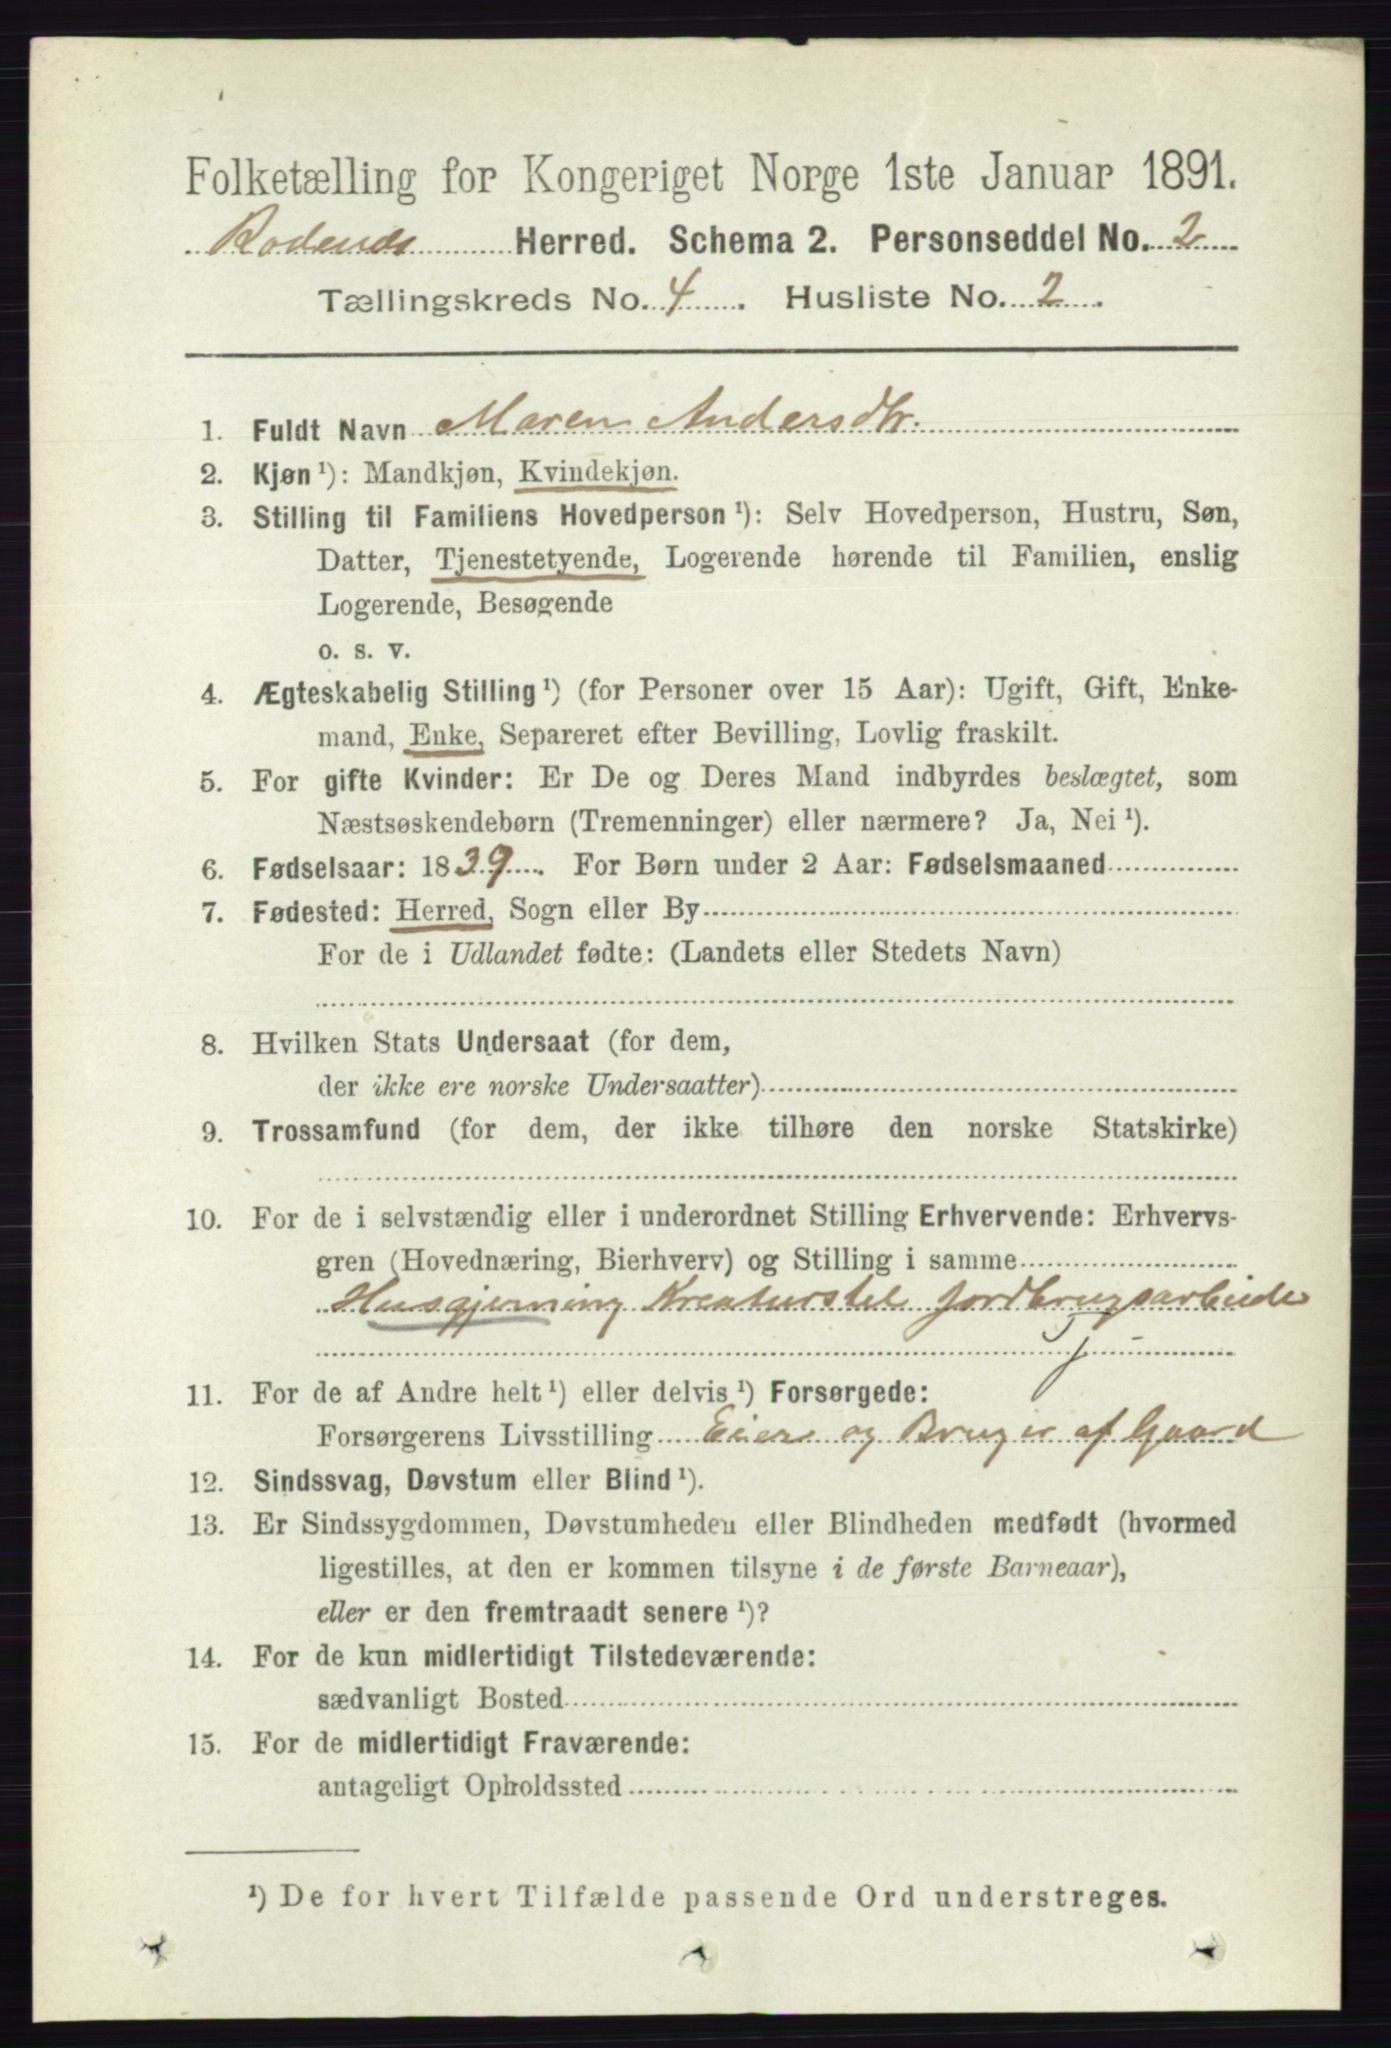 Folketælling for Kongeriget Norge 1ste Januar 1891.
Rødenes Herred. Schema 2. Personseddel No. 2
Tællingskreds No. 4. Husliste No. 2.
1. Fuldt Navn Maren Andersdtr.
2. Kjøn ¹): Mandkjøn, Kvindekjøn.
3. Stilling til Familiens Hovedperson ¹): Selv Hovedperson, Hustru, Søn,
Datter, Tjenestetyende, Logerende hørende til Familien, enslig
Logerende, Besøgende
o. s. v.
4. Ægteskabelig Stilling ¹) (for Personer over 15 Aar): Ugift, Gift, Enke-
mand, Enke, Separeret efter Bevilling, Lovlig fraskilt.
5. For gifte Kvinder: Er De og Deres Mand indbyrdes beslægtet, som
Næstsøskendebørn (Tremenninger) eller nærmere? Ja, Nei ¹).
6. Fødselsaar: 1839. For Børn under 2 Aar: Fødselsmaaned
7. Fødested: Herred, Sogn eller By
For de i Udlandet fødte: (Landets eller Stedets Navn)
8. Hvilken Stats Undersaat (for dem,
der ikke ere norske Undersaatter)
9. Trossamfund (for dem, der ikke tilhøre den norske Statskirke)
10. For de i selvstændig eller i underordnet Stilling Erhvervende: Erhvervs-
gren (Hovednæring, Bierhverv) og Stilling i samme
Husgjerning Kreaturstel Jordbrugsarbeide
11. For de af Andre helt ¹) eller delvis ¹) Forsørgede:
Forsørgerens Livsstilling Eier og Bruger af Gaard
12. Sindssvag, Døvstum eller Blind ¹).
13. Er Sindssygdommen, Døvstumheden eller Blindheden medfødt (hvormed
ligestilles, at den er kommen tilsyne i de første Barneaar),
eller er den fremtraadt senere ¹)?
14. For de kun midlertidigt Tilstedeværende:
sædvanligt Bosted
15. For de midlertidigt Fraværende:
antageligt Opholdssted
¹) De for hvert Tilfælde passende Ord understreges.